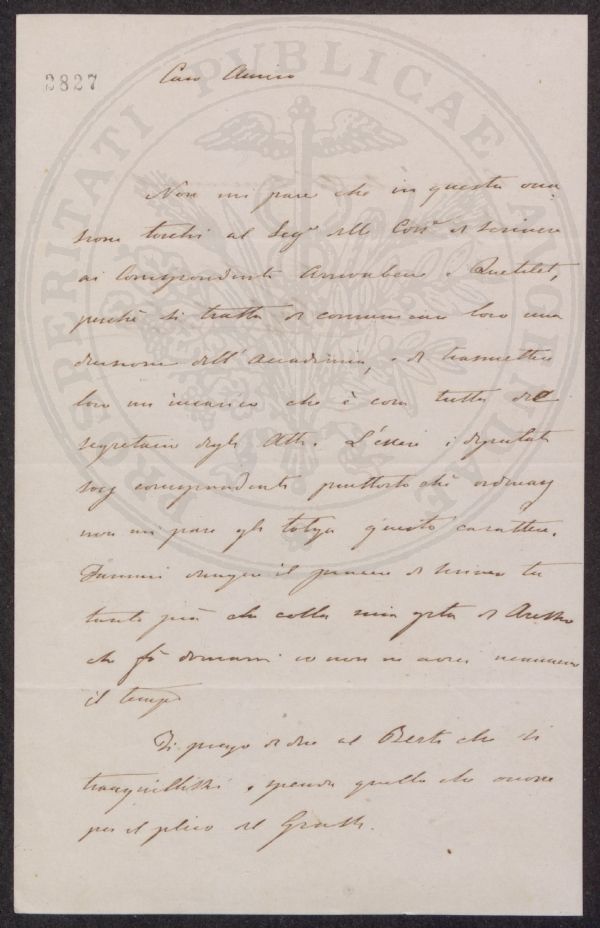 2827
Caro Amico
PROSPERITATI PVBLICAE AVGENDAE
Non mi pare che in questa occa
sione tocchi al Seg.º delle Corr.e di scrivere
ai Corrispondenti Arrivabene e Quetelet,
perchè si tratta di comunicare loro una
decisione dell'Accademia, e di trasmettere
loro un incarico che è cosa tutta del
segretario degli Atti. L'essere i deputati
socj corrispondenti piuttosto chè ordinarj
non mi pare gli tolga questo carattere.
Fammi dunque il piacere di scrivere tu
tanto più che colla mia gita di Arezzo
che fò domani io non ne avrei nemmeno
il tempo
Ti prego di dire al Berti che si
tranquillizzi e spenda quello che occorre
per il plico del